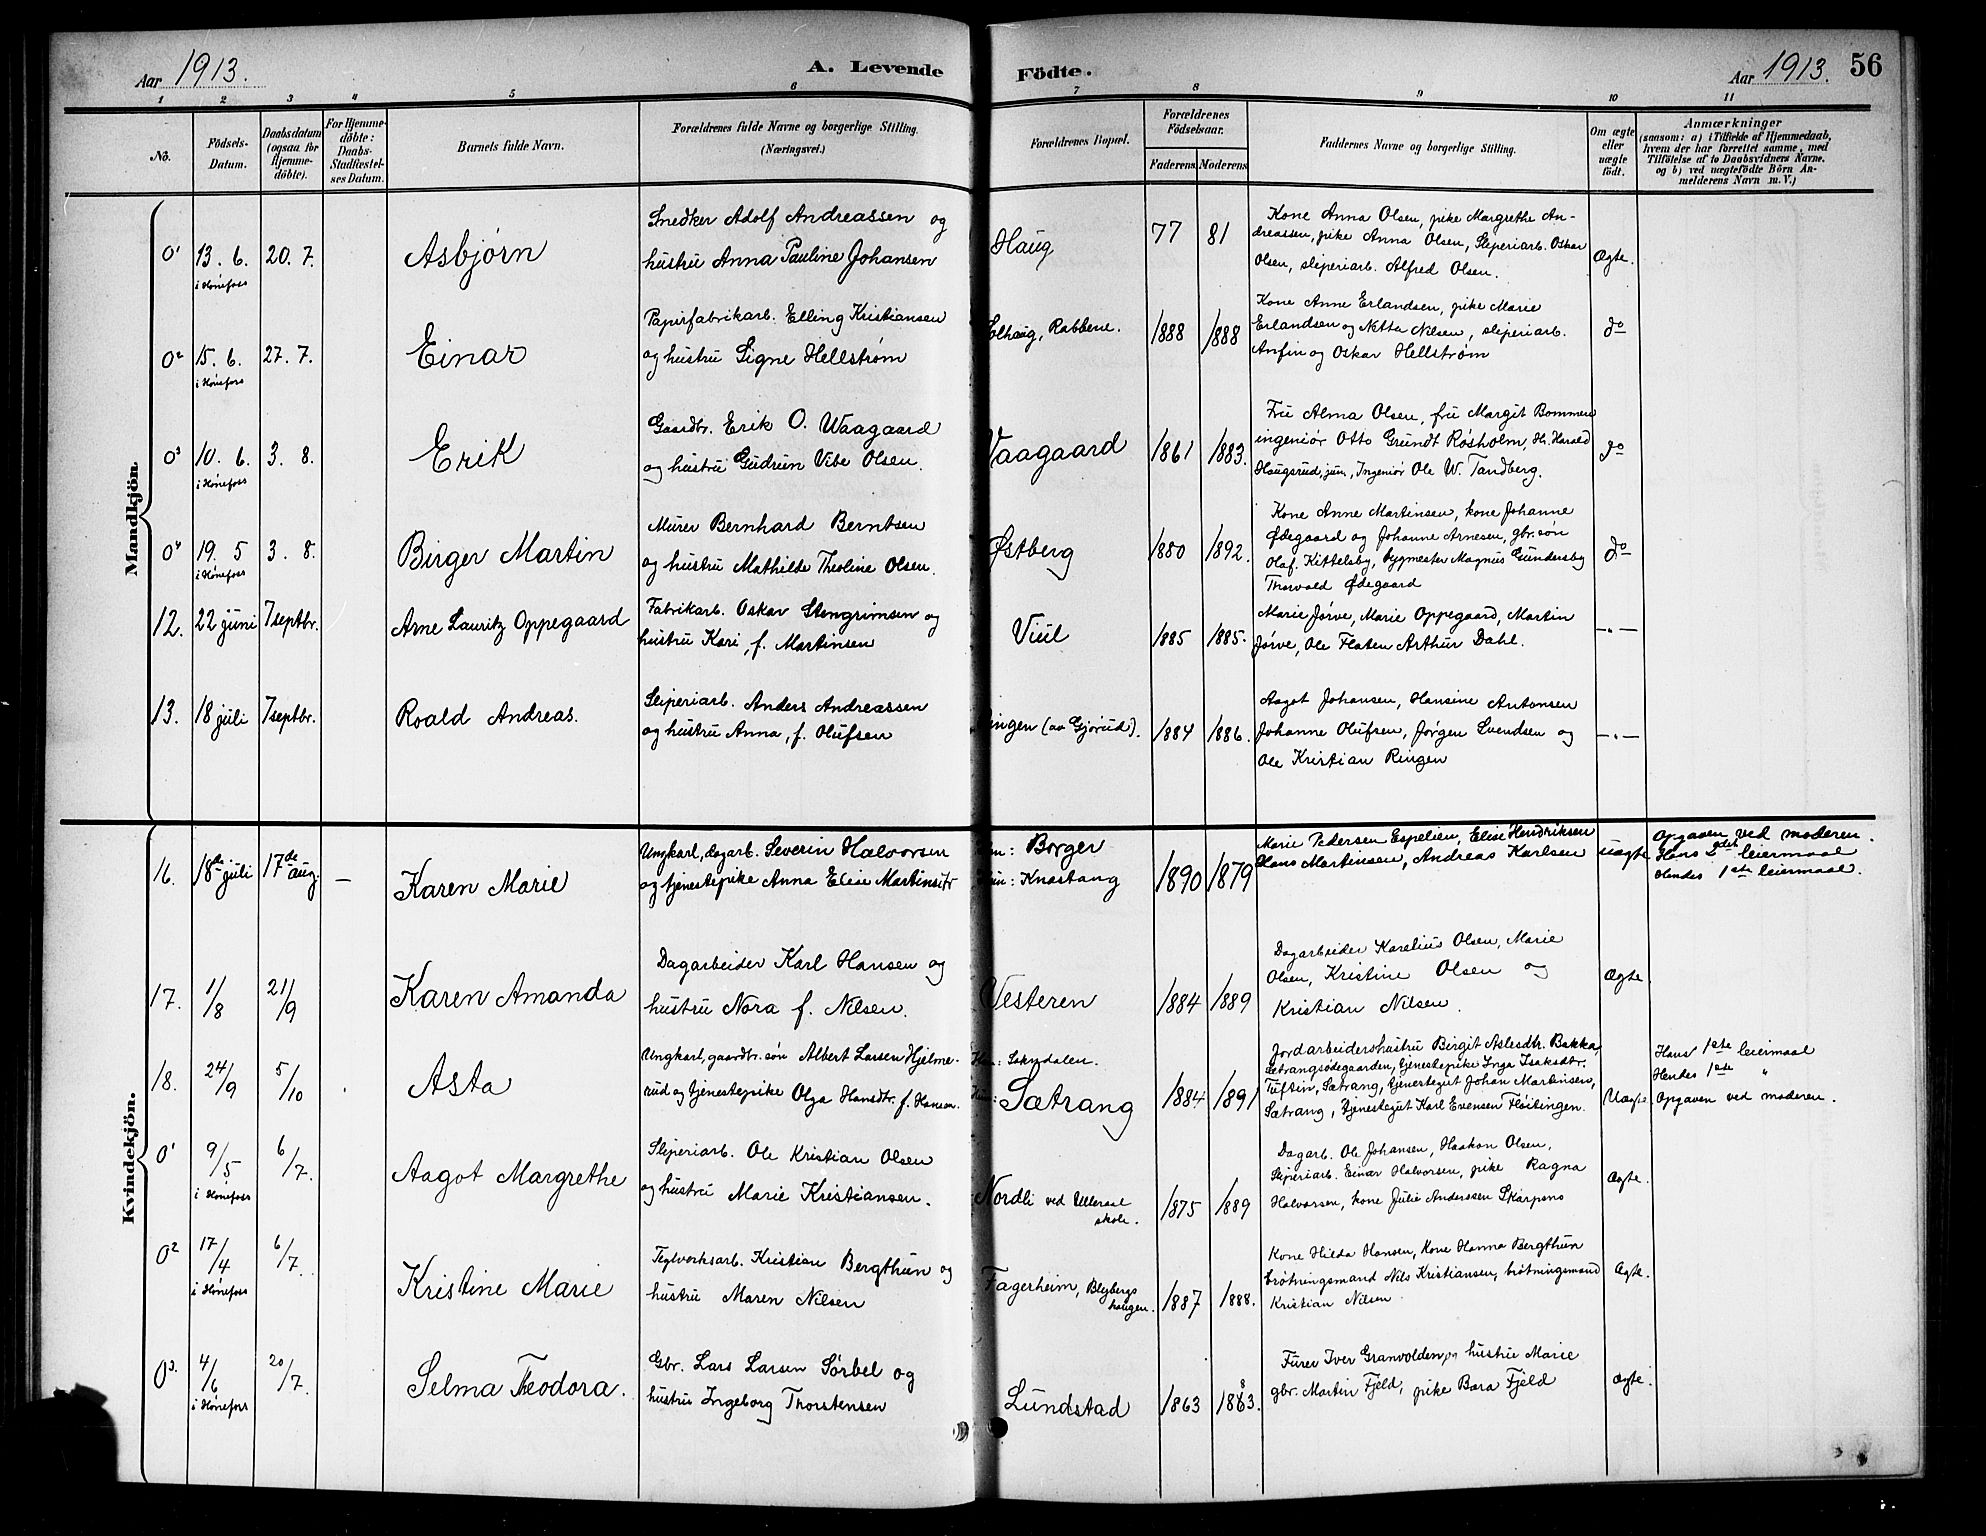 Aar 1913.
A. Levende
Födte.
Aar 1913.
56
1 2 3 4 5 6 7 8 9 10 11
No.
Födsels-
Datum.
Daabsdatum
(ogsaa for
Hjemme-
döbte).
For Hjemme-
döbte:
Daabs-
Stadfæstel-
ses Datum.
Barnets fulde Navn.
Forældrenes fulde Navne og borgerlige Stilling.
(Næringsvei.)
Forældrenes Bopæl.
Forældrenes
Födselsaar.
Faderens Moderens
Faddernes Navne og borgerlige Stilling.
Om ægte
eller
uægte
födt.
Anmærkninger
(saasom: a) i Tilfælde af Hjemmedaab,
hvem der har forrettet samme, med
Tilföielse af to Daabsvidners Navne.
og b) ved uægtefödte Börn An-
melderens Navn m. V.)
Mandkjön.
0¹ 13. 6. 20. 7.
i Hönefoss
Asbjørn
Snedker Adolf Andreassen og
hustru Anna Pauline Johansen
Haug
77 81
Kone Anna Olsen, pike Margrethe An-
dreassen, pike Anna Olsen, Sliperiarb. Oskar
Olsen, sliperiarb. Alfred Olsen.
Ægte.
0² 15. 6. 27. 7.
i Hönefoss
Einar
Papirfabrikarb. Elling Kristiansen
og hustru Signe Hellstrøm
Solhaug, Rabbene.
1888 1888
Kone Anne Erlandsen, pike Marie
Erlandsen og Netta Nilsen, sliperiarb.
Anfin og Oskar Hellstrøm
do
0³ 10. 6. 3. 8.
i Hönefoss
Erik
Gaardbr. Erik O. Waagaard
og hustru Gudrun Vibe Olsen.
Vaagaard
1861 1883.
Fru Alma Olsen, fru Margit Bommen
ingeniør Otto Grundt Røsholm, Hr. Harald
Haugsrud, jun., Ingeniør Ole W. Tandberg.
do
0⁴ 19. 5 3. 8.
i Hönefoss
Birger Martin
Murer Bernhard Berntsen
og hustru Mathilde Theoline Olsen.
Østberg
1880 1892.
Kone Anne Martinsen, kone Johanne
Ødegaard og Johanne Arnesen, gbr. søn
Olaf Kittelsby, bygmester Magnus Gundersby
Thorvald Ødegaard
do
12. 22 juni 7 septbr.
Arne Lauritz Oppegaard
Fabrikarb. Oskar Stengrimsen og
hustru Kari, f. Martinsen
Viul
1885 1885.
Marie Jørve, Marie Oppegaard, Martin
Jørve, Ole Flaten Arthur Dahl.
—"—
13. 18 juli 7 septbr.
Roald Andreas.
Sliperiarb. Anders Andreassen
og hustru Anna, f. Olufsen
Ringen (av Gjørud).
1884 1886.
Aagot Johansen, Hansine Antonsen
Johanne Olufsen, Jørgen Svendsen og
Ole Kristian Ringen
—"—
Kvindekjön.
16. 18de juli 17de aug. —
Karen Marie
Ungkarl, dagarb. Severin Halvorsen
og tjenestepike Anna Elise Martinsdtr
Han: Borger
Hun: Knestang
1890 1879
Marie Pedersen Espelien, Elise Hendriksen
Hans Martinsen, Andreas Karlsen
uægte
Opgaven ved moderen.
Hans 2det leiermaal
Hendes 1ste leiermaal.
17. 1/8 21/9
Karen Amanda
Dagarbeider Karl Hansen og
hustru Nora f. Nilsen.
Vesteren
1884 1889
Dagarbeider Karelius Olsen, Marie
Olsen, Kristine Olsen og
Kristian Nilsen.
Ægte.
18. 24/9 5/10
Asta
Ungkarl, gaardbr. søn Albert Larsen Hjelme-
rud og tjenestepike Olga Hansdtr. f. Hansen.
Han: Sokndalen.
Hun: Sætrang
1884 1891
Jordarbeidershustru Birgit Aslesdtr. Bakka,
Sætrangsødegaarden, tjenestepike Inga Isaksdtr.
Tuftin, Sætrang, tjenestegut Johan Martinsen,
Sætrang, tjenestegut Karl Evensen Fløitingen.
Uægte
Hans 1ste leiermaal
Hendes 1ste "
Opgaven ved moderen.
0¹ 9/5 6/7.
i Hönefoss
Aagot Margrethe
Sliperiarb. Ole Kristian Olsen
og hustru Marie Kristiansen.
Nordli ved Ulleraal
skole.
1875 1889
Dagarb. Ole Johansen, Haakon Olsen,
Sliperiarb. Einar Halvorsen, pike Ragna
Halvorsen, kone Julie Anderssen Skarpsno
Ægte.
0² 17/4 6/7.
i Hönefoss
Kristine Marie
Teglverksarb. Kristian Bergthun og
hustru Maren Nilsen
Fagerheim, Blybergs
haugen.
1887 1888.
Kone Hilda Hansen, Kone Hanna Bergthun
brøtningsmand Nils Kristiansen, brøtningsmand
Kristian Nilsen.
Ægte.
0³. 4/6 20/7.
i Hönefoss
Selma Theodora.
Gbr. Lars Larsen Sørbel og
hustru Ingeborg Thorstensen
Lundstad
1863 1883.
Furer Iver Granvolden og hustru Marie
gbr. Martin Fjeld, pike Bara Fjeld
Ægte.